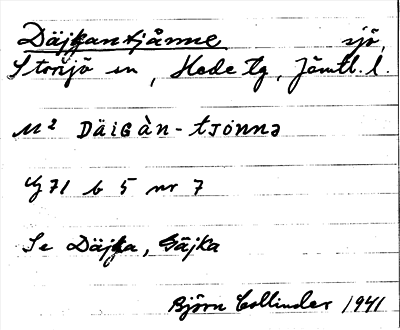 Däjkantjånne sjö,
Storsjö sn, Hede tg, Jämtl. l.
M² DÄIGÀN-TJÖNNƏ
G 71 b 5 nr 7
Se Däjka, Gäjka
Björn Collinder 1941